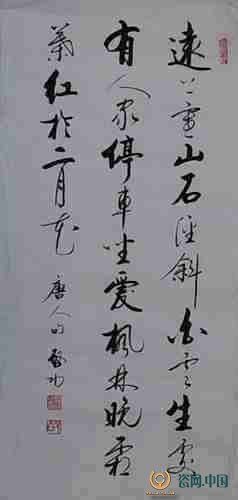 遠上寒山石径斜白云生處
有人家停車坐愛楓林晚霜
葉紅於二月花
唐人句 啓功
瓷网.中国